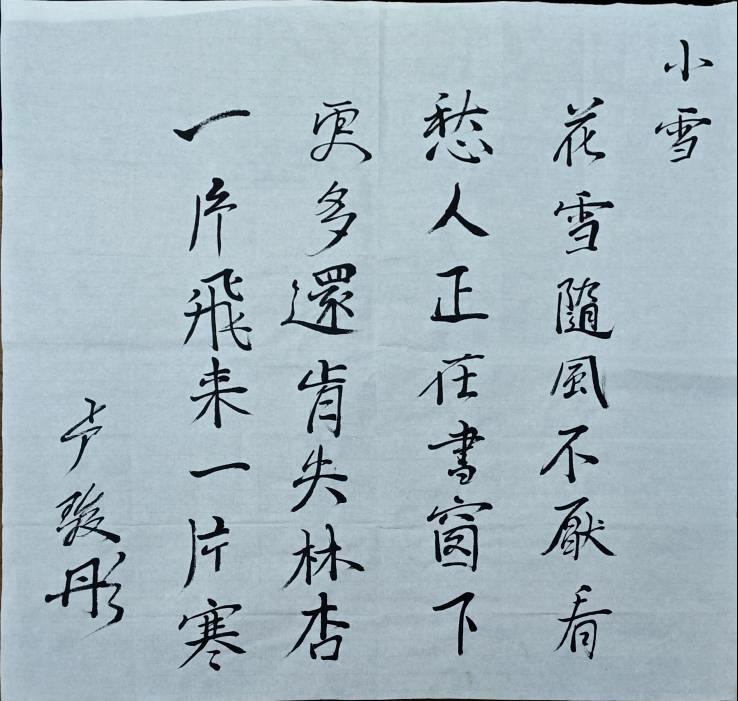 小雪
花雪隨風不厭看
愁人正在書窗下
更多還肯失林杏
一片飛来一片寒
卢駿彤